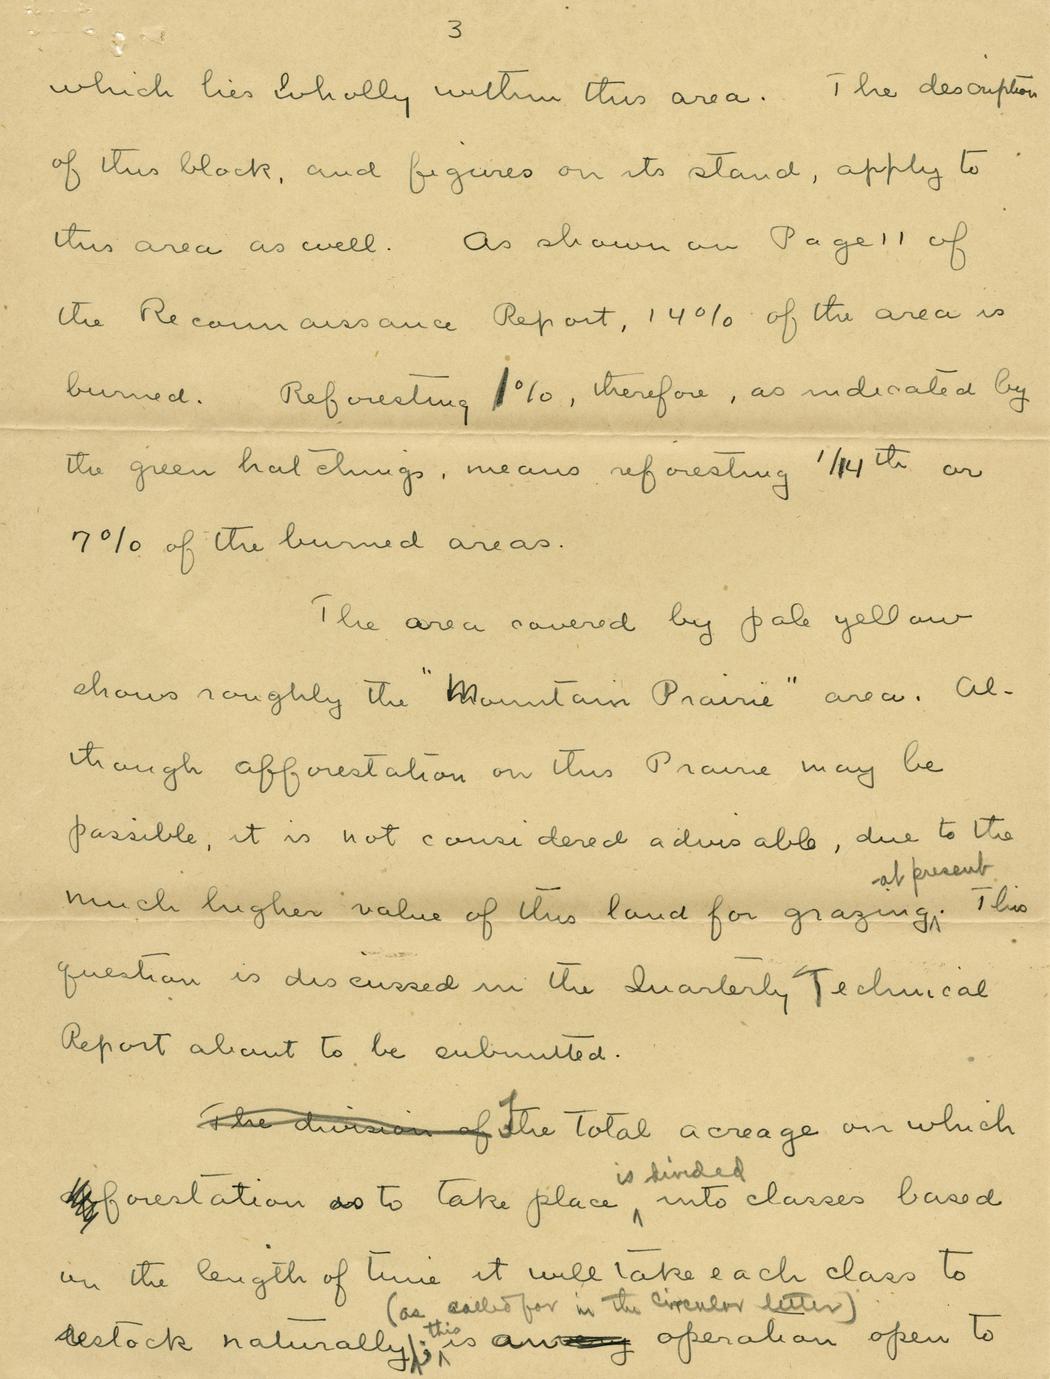 3
which lies wholly within this area. The description
of this block, and figures on its stand, apply to
this area as well. As shown on Page 11 of
the Reconnaissance Report, 14% of the area is
burned. Reforesting 1%, therefore, as indicated by
the green hatchings, means reforesting 1/14th or
7% of the burned areas.
The area covered by pale yellow
shows roughly the "Mountain Prairie" area. Al-
though afforestation on this Prairie may be
possible, it is not considered advisable, due to the
at present
much higher value of this land for grazing. This
question is discussed in the Quarterly Technical
Report about to be submitted.
The division of The total acreage on which
is divided
forestation is to take place into classes based
on the length of time it will take each class to
(as called for in the circular letter)
restock naturally; this is an operation open to